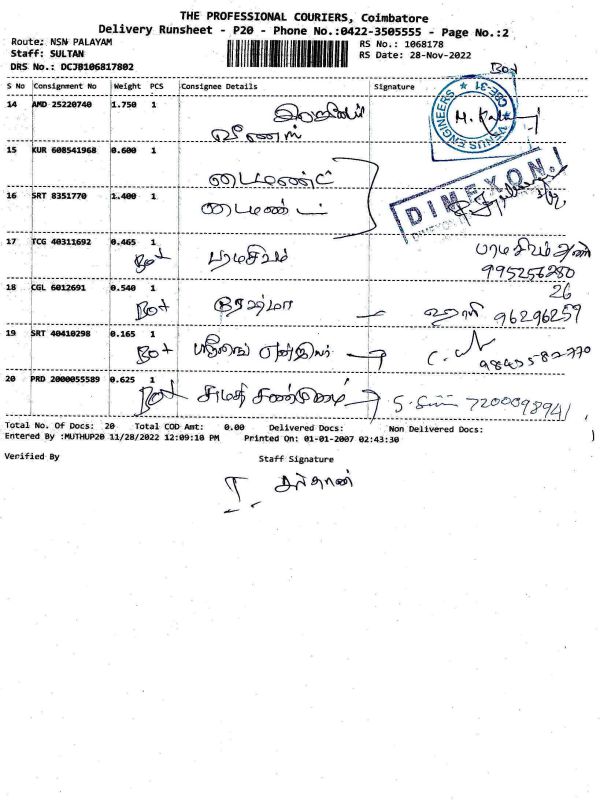 THE PROFESSIONAL COURIERS, Coimbatore
Delivery Runsheet - P20 - Phone No.:0422-3505555 - Page No.:2
Route: NSN PALAYAM RS No.: 1068178
Staff: SULTAN RS Date: 28-Nov-2022
DRS No.: DCJB106817802
Box
S No Consignment No Weight PCS Consignee Details Signature
14 AMD 25220740 1.750 1
VENUS ENGINEERS ★ CBE-31 ★
15 KUR 608541968 0.600 1 டைமண்ட்
16 SRT 8351770 1.400 1 டைமண்ட்
DIMEXON
17 TCG 40311692 0.465 1 Box பரமசிவம் பரமசிவம்
995256280
18 CGL 6012691 0.540 1 Box ரேஷ்மா — 26
96296259
19 SRT 40410298 0.165 1 Box
9843582770
20 PRD 2000055589 0.625 1 Box 7200098941
Total No. Of Docs: 20 Total COD Amt: 0.00 Delivered Docs: Non Delivered Docs:
Entered By :MUTHUP20 11/28/2022 12:09:10 PM Printed On: 01-01-2007 02:43:30
Verified By Staff Signature